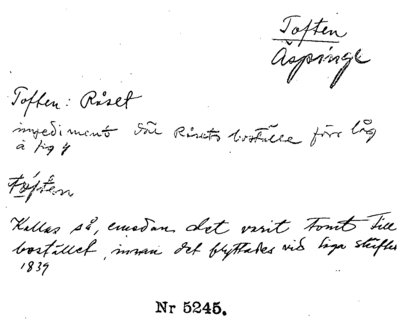 Toften
Äspinge
Toften: Råset
där Råsets boställe förr låg
å fig 4
Toften
Kallas så, emedan det varit tomt till
bostället, innan det flyttades vid laga skiftet
1839
Nr 5245.